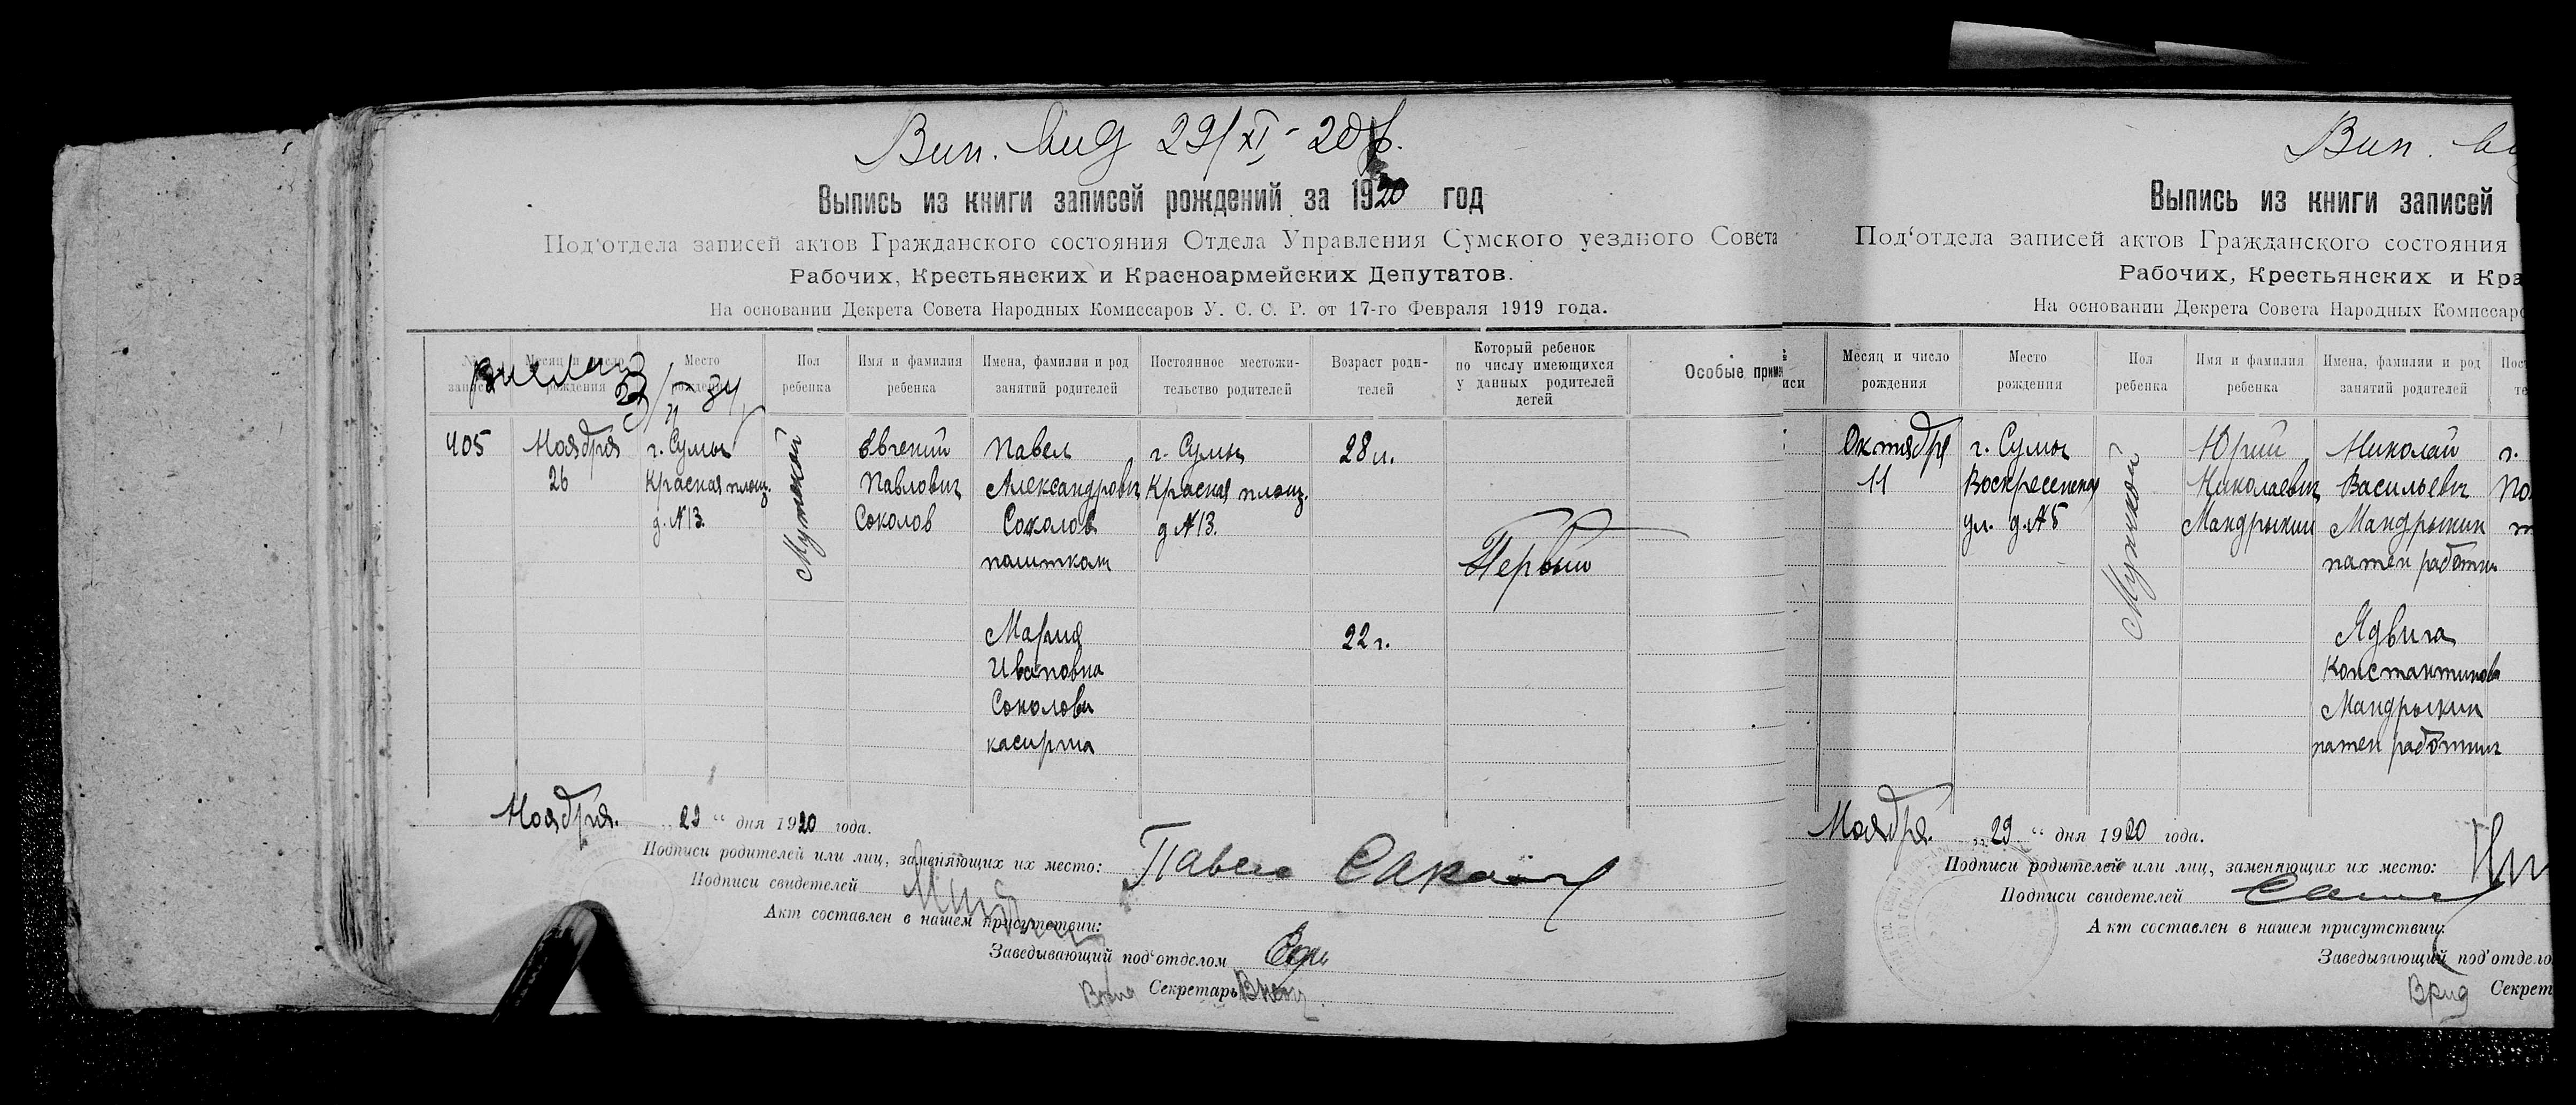 Вип. вид 29/XI - 20 р.
Выпись из книги записей рождений за 1920 год
Под'отдела записей актов Гражданского состояния Отдела Управления Сумского уездного Совета
Рабочих, Крестьянских и Красноармейских Депутатов.
На основании Декрета Совета Народных Комиссаров У. С. С. Р. от 17-го Февраля 1919 года.
Месяц и число рождения
Место рождения
Пол ребенка
Имя и фамилия ребенка
Имена, фамилии и род занятий родителей
Постоянное местожительство родителей
Возраст родителей
Который ребенок по числу имеющихся у данных родителей детей
Особые приме
405
Ноября
26
г. Сумы
Красная площ.
д. № 13.
Мужской
Евгений
Павлович
Соколов
Павел
Александрович
Соколов
Мария
Ивановна
Соколова
касирша
г. Сумы
Красная площ.
д № 13.
28 л.
22 г.
Первый
Ноября. 29 " дня 1920 года.
Подписи родителей или лиц, заменяющих их место: Павел
Подписи свидетелей
Акт составлен в нашем присутствии:
Заведывающий под'отделом
Секретарь
Вип. ви
Выпись из книги записей
Под'отдела записей актов Гражданского состояния
Рабочих, Крестьянских и Кра
На основании Декрета Совета Народных Комиссаро
иси
Месяц и число рождения
Место рождения
Пол ребенка
Имя и фамилия ребенка
Имена, фамилии и род занятий родителей
Пос
те
Октября
11
г. Сумы
Воскресенская
ул. д. № 5
Мужской
Юрий
Николаевич
Мандрыкин
Николай
Васильевич
Мандрыкин
Ядвига
Константинов
Мандрыкин
г.
Ноября. „29 " дня 1920 года.
Подписи родителей или лиц, заменяющих их место:
Подписи свидетелей
Акт составлен в нашем присутствии:
Заведывающий под'отдело
Врид Секрет